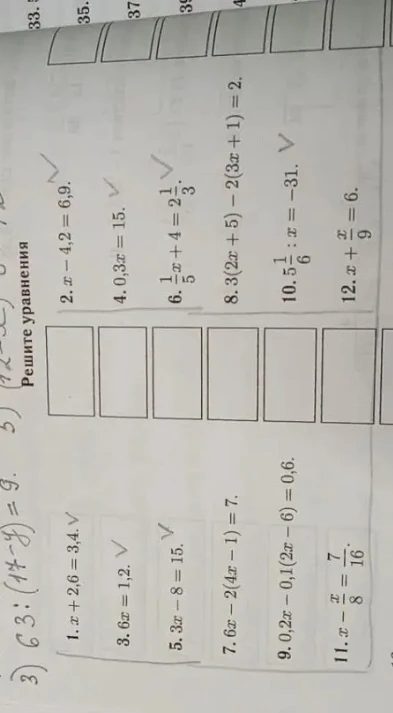 3) 63:(17-y)=9. 5)
Решите уравнения
1. x + 2,6 = 3,4. 2. x − 4,2 = 6,9. 33.
3. 6x = 1,2. 4. 0,3x = 15. 35.
5. 3x − 8 = 15. 6. 1/5 x + 4 = 2 1/3. 37
7. 6x − 2(4x − 1) = 7. 8. 3(2x + 5) − 2(3x + 1) = 2.
9. 0,2x − 0,1(2x − 6) = 0,6. 10. 5 1/6 : x = −31.
11. x − x/8 = 7/16. 12. x + x/9 = 6.